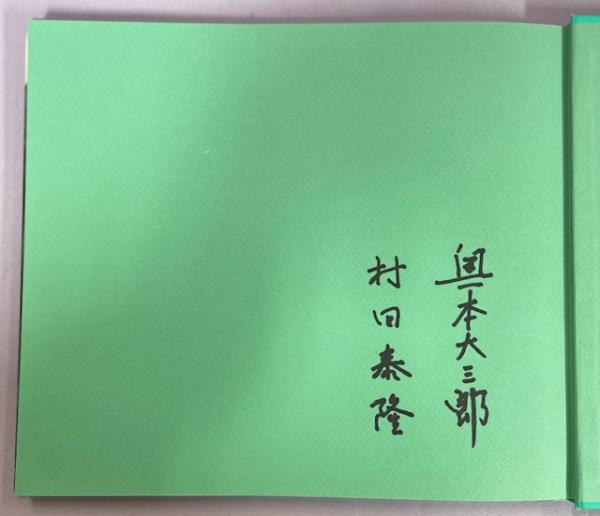 奥本大三郎
村田泰隆